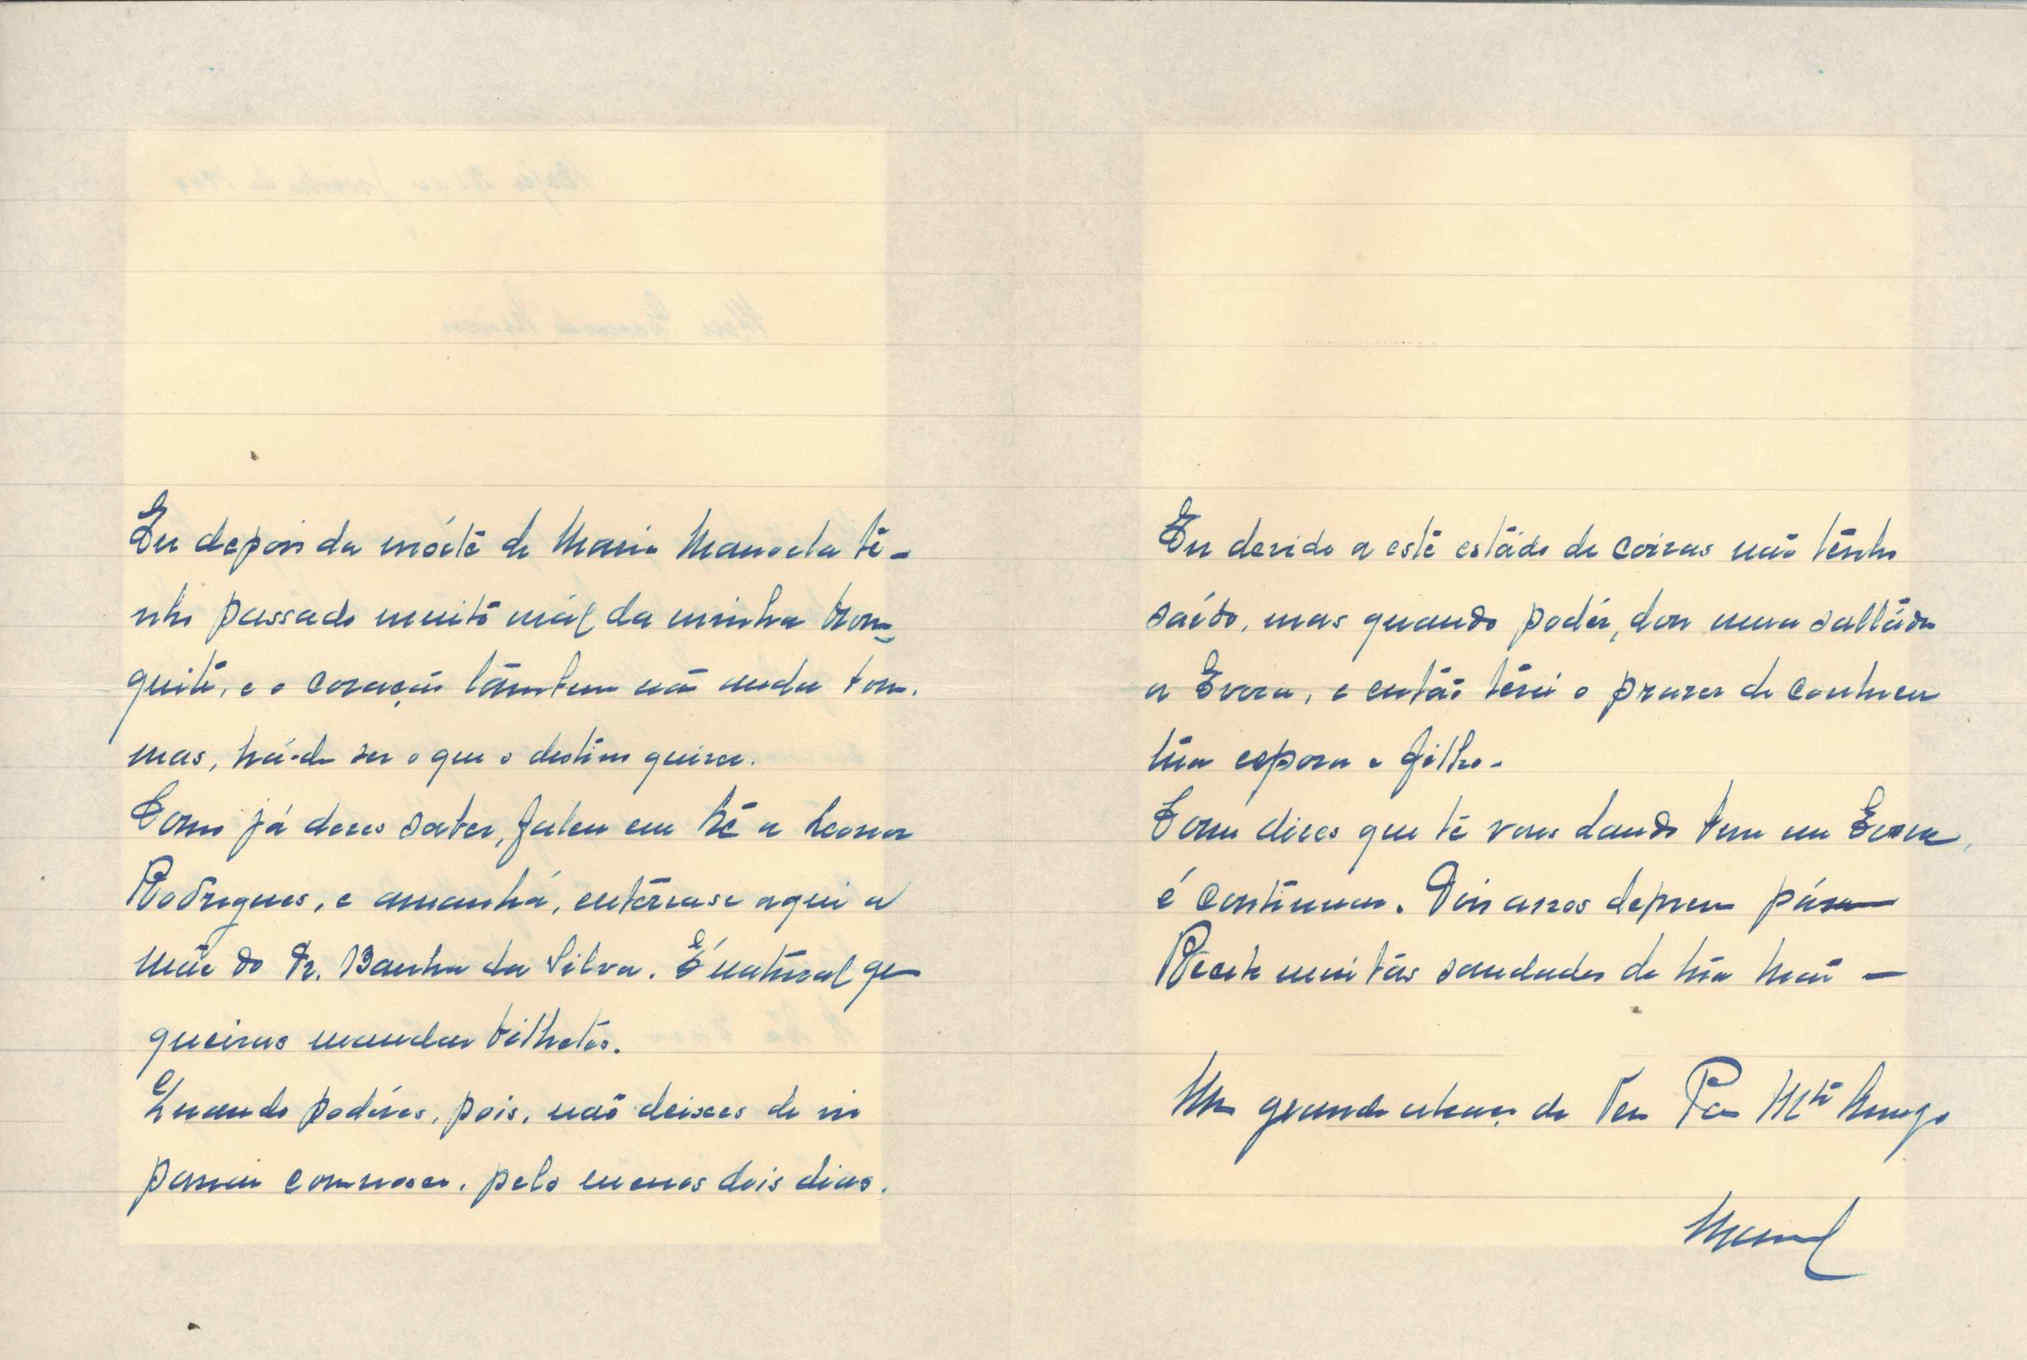 Eu depois da mórte de Maria Manoela te-
nho passado muito mál da minha bron-
quite, e o coração tambem não anda bom.
mas, há-de ser o que o destino quizer.
Como já deves saber, faleu em Bé a Leonor
Rodrigues, e amanhã, enterra-se aqui a
mãe do Dr. Banha da Silva. É natural que
queiras mandar bilhetes.
Quando podéres, pois, não deixes de vir
passar comnosco, pelo menos dois dias.
Eu devido a este estádo de coizas não tenho
saído, mas quando podér, dou uma saltáda
a Evora, e então terei o prazer de conhecer
tua esposa e filho.
Como dizes que te vais dando bem em Evora,
é continuar. Dois anos depressa pássam
Recebe muitas saudades de tua Mãe —
Um grande abraço de Teu Pae Mto Amigo
Manoel